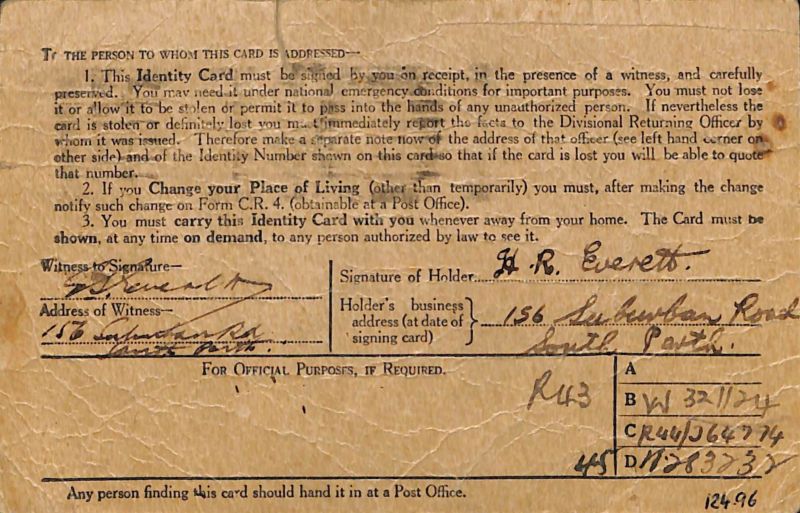 TO THE PERSON TO WHOM THIS CARD IS ADDRESSED—
1. This Identity Card must be signed by you on receipt, in the presence of a witness, and carefully
preserved. You may need it under national emergency conditions for important purposes. You must not lose
it or allow it to be stolen or permit it to pass into the hands of any unauthorized person. If nevertheless the
card is stolen or definitely lost you must immediately report the facts to the Divisional Returning Officer by
whom it was issued. Therefore make a separate note now of the address of that officer (see left hand corner on
other side) and of the Identity Number shown on this card so that if the card is lost you will be able to quote
that number.
2. If you Change your Place of Living (other than temporarily) you must, after making the change
notify such change on Form C.R. 4. (obtainable at a Post Office).
3. You must carry this Identity Card with you whenever away from your home. The Card must be
shown, at any time on demand, to any person authorized by law to see it.
Witness to Signature—
Signature of Holder H. R. Everett.
Address of Witness—
156 Suburban Rd
South Perth.
Holder's business
address (at date of
signing card)
156 Suburban Road
South Perth.
FOR OFFICIAL PURPOSES, IF REQUIRED.
R43
45
A
B W 321124
C R44/J64774
D N283232
Any person finding this card should hand it in at a Post Office.
124.96